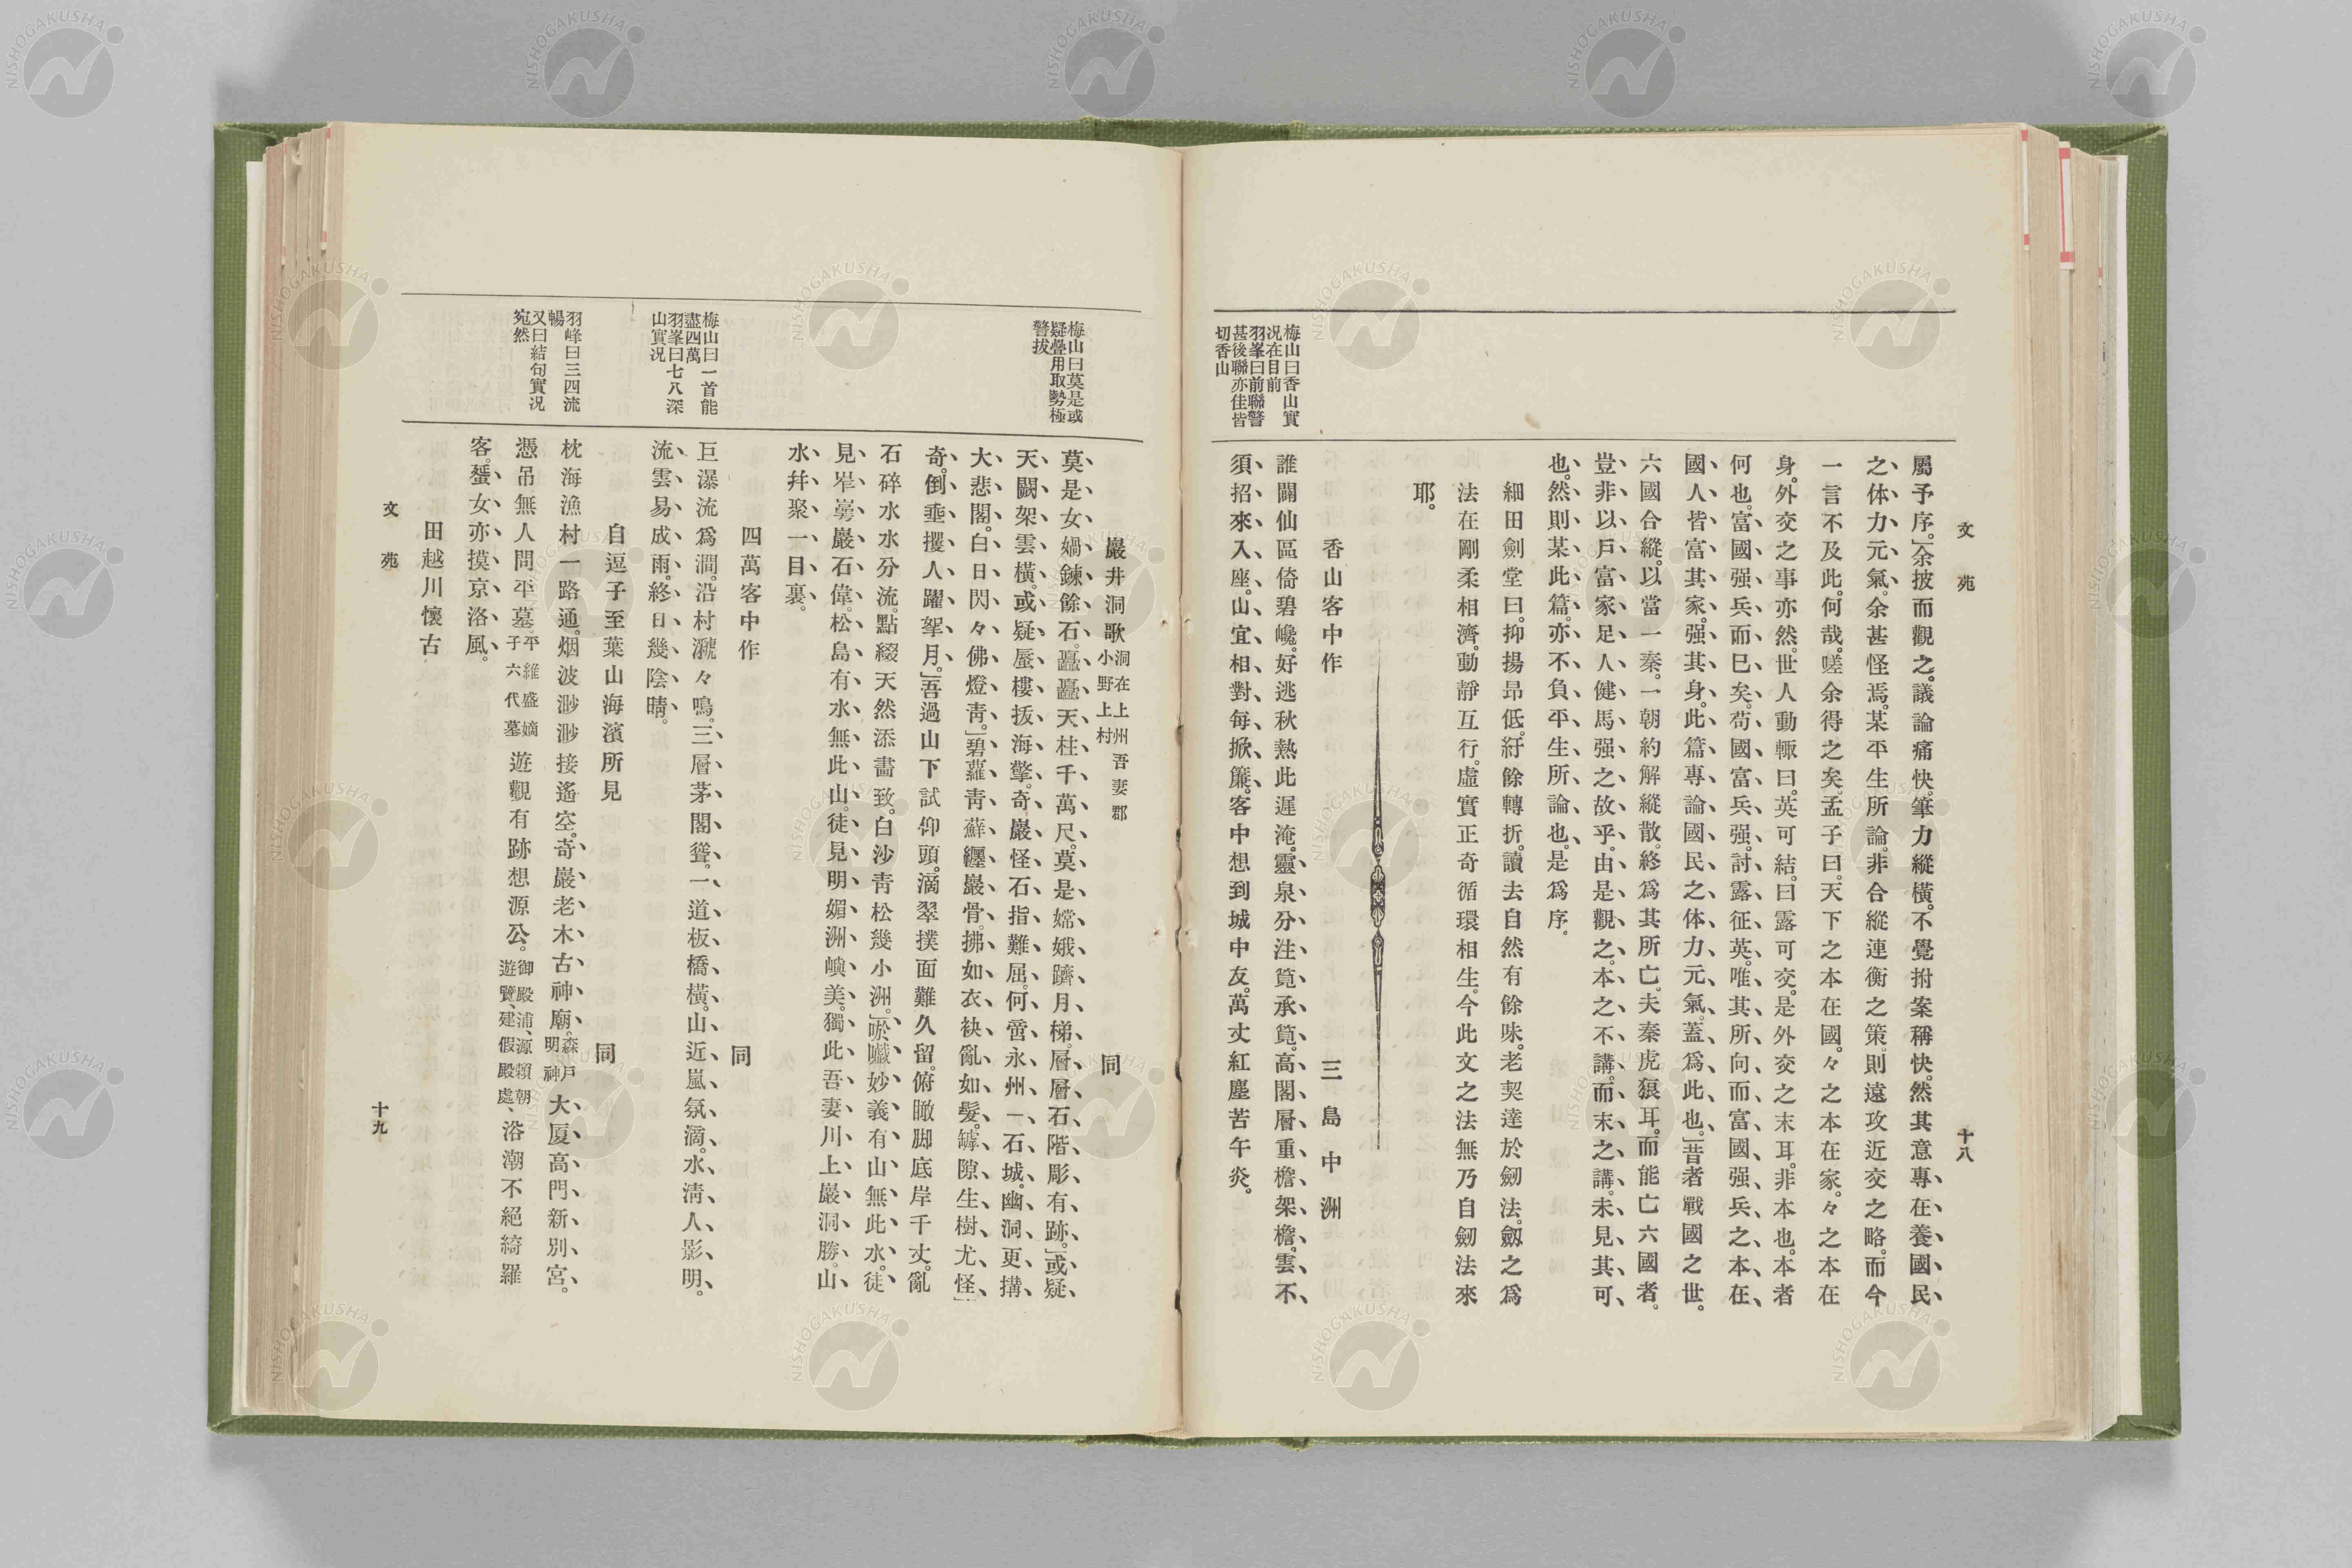 文苑
十八
屬予序。」余披而觀之。議論痛快。筆力縱橫。不覺拊案稱快。然其意專、在、養、國、民、
之、体、力、元、氣、。余甚怪焉。某平生所論。非合縱連衡之策。則遠攻近交之略。而今
一言不及此。何哉。嗟余得之矣。孟子曰。天下之本在國。々之本在家。々之本在
身。外交之事亦然。世人動輒曰。英可結。曰露可交。是外交之末耳。非本也。本者
何也。富、國、强、兵、而、已、矣、。苟、國、富、兵、强、。討、露、征、英、。唯、其、所、向、而、富、國、强、兵、之、本、在、
國、人、皆、富、其、家、。强、其、身、。此、篇、專、論、國、民、之、体、力、元、氣、。蓋、爲、此、也、。」昔者戰國之世。
六國合縱。以當一秦。一朝約解縱散。終爲其所亡。夫秦虎狼耳。而能亡六國者。
豈、非、以、戶、富、家、足、人、健、馬、强、之、故、乎、。由、是、觀、之、。本、之、不、講、。而、末、之、講、。未、見、其、可、
也、。然、則、某、此、篇、。亦、不、負、平、生、所、論、也、。是爲序。
細田劍堂曰。抑揚昂低。紆餘轉折。讀去自然有餘味。老契達於劒法。劒之爲
法在剛柔相濟。動靜互行。虛實正奇循環相生。今此文之法無乃自劒法來
耶。
香山客中作　三島中洲
梅山曰香山實
况在目前
羽峯曰前聯警
甚後聯亦佳皆
切香山
誰闢仙區倚碧巉。好逃秋熱此遲淹。靈、泉、分、注、筧、承、筧、。高、閣、層、重、檐、架、檐、。雲、不、
須、招、來、入、座、。山、宜、相、對、每、掀、簾、。客中想到城中友。萬丈紅塵苦午炎。
巖井洞歌 洞在上州吾妻郡小野上村　同
梅山曰莫是或
疑疊用取勢極
警拔
莫、是、女、媧、鍊、餘、石、。矗、矗、天、柱、千、萬、尺、。莫、是、嫦、娥、躋、月、梯、。層、層、石、階、彫、有、跡、。」或、疑、
天、闕、架、雲、橫、。或、疑、蜃、樓、拔、海、擎、。奇、巖、怪、石、指、難、屈、。何、啻、永、州、一、石、城、。幽、洞、更、搆、
大、悲、閣、。白、日、閃、々、佛、燈、靑、。」碧、蘿、靑、蘚、纒、巖、骨、。拂、如、衣、袂、亂、如、髮、。罅、隙、生、樹、尤、怪、
奇、。倒、垂、攫、人、躍、拏、月、。」吾過山下試仰頭。滴翠撲面難久留。俯瞰脚底岸千丈。亂
石碎水水分流。點綴天然添畵致。白沙靑松幾小洲。」唹、嚱、妙、義、有、山、無、此、水、。徒、
見、峷、崣、巖、石、偉、。松、島、有、水、無、此、山、。徒、見、明、媚、洲、嶼、美、。獨、此、吾、妻、川、上、巖、洞、勝、。山、
水、幷、聚、一、目、裏、。
四萬客中作　同
梅山曰一首能
盡四萬
羽峯曰七八深
山實况
巨瀑流爲澗。沿村㶁々鳴。三、層、茅、閣、聳、。一、道、板、橋、橫、。山、近、嵐、氛、滴、。水、淸、人、影、明、。
流、雲、易、成、雨、。終、日、幾、陰、晴、。
自逗子至葉山海濱所見　同
羽峰曰三四流
暢
又曰結句實况
宛然
枕海漁村一路通。烟波渺渺接遙空。奇、巖、老、木、古、神、廟、。森戶明神 大、廈、高、門、新、別、宮、。
田越川懷古
憑吊無人問平墓 平維盛嫡子六代墓 遊觀有跡想源公。 御殿浦、源賴朝遊覽、建假殿處、 浴潮不絕綺羅
客。蜑、女、亦、摸、京、洛、風、。
文苑
十九